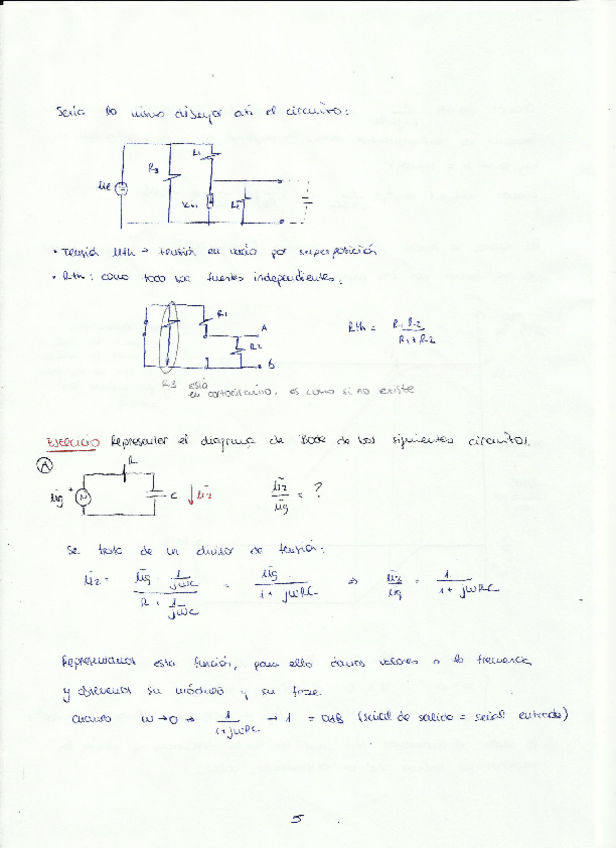 Sería lo mismo dibujar así el circuito:
R1
R3
Ue
R2
• Tensión Uth → tensión en vacío por superposición
• Rth: como todo son fuentes independientes.
R1
A
R2
B
Rth = R1 R2 / R1 + R2
R3 está
en cortocircuito. es como si no existe
Ejercicio Representar el diagrama de Bode de los siguientes circuitos.
A
R
ūg
+
N
C
↓ ū2
ū2 / ūg = ?
Se trata de un divisor de tensión:
ū2 = ūg · 1/jωC / R + 1/jωC = ūg / 1 + jωRC ⇒ ū2 / ūg = 1 / 1 + jωRC
Representamos esta función, para ello damos valores a la frecuencia
y obtenemos su módulo y su fase.
Cuando ω → 0 ⇒ 1 / 1 + jωRC → 1 = 0dB (señal de salida = señal entrada)
5